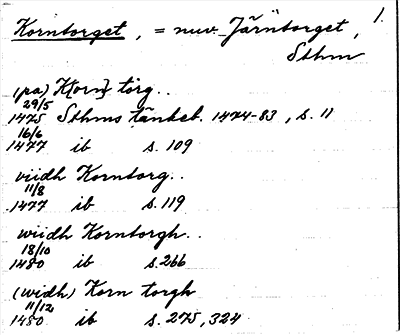 1.
Korntorget, = nuv. Järntorget,
Sthm
(pa) K[orn] torg..
29/5
1475 Sthms tänkeb. 1474-83, s. 11
16/6
1477 ib s. 109
viidh Korntorg..
11/8
1477 ib s. 119
wiidh Korntorgh..
18/10
1480 ib s. 266
(widh) Korn torgh
11/12
1480 ib s. 275, 324